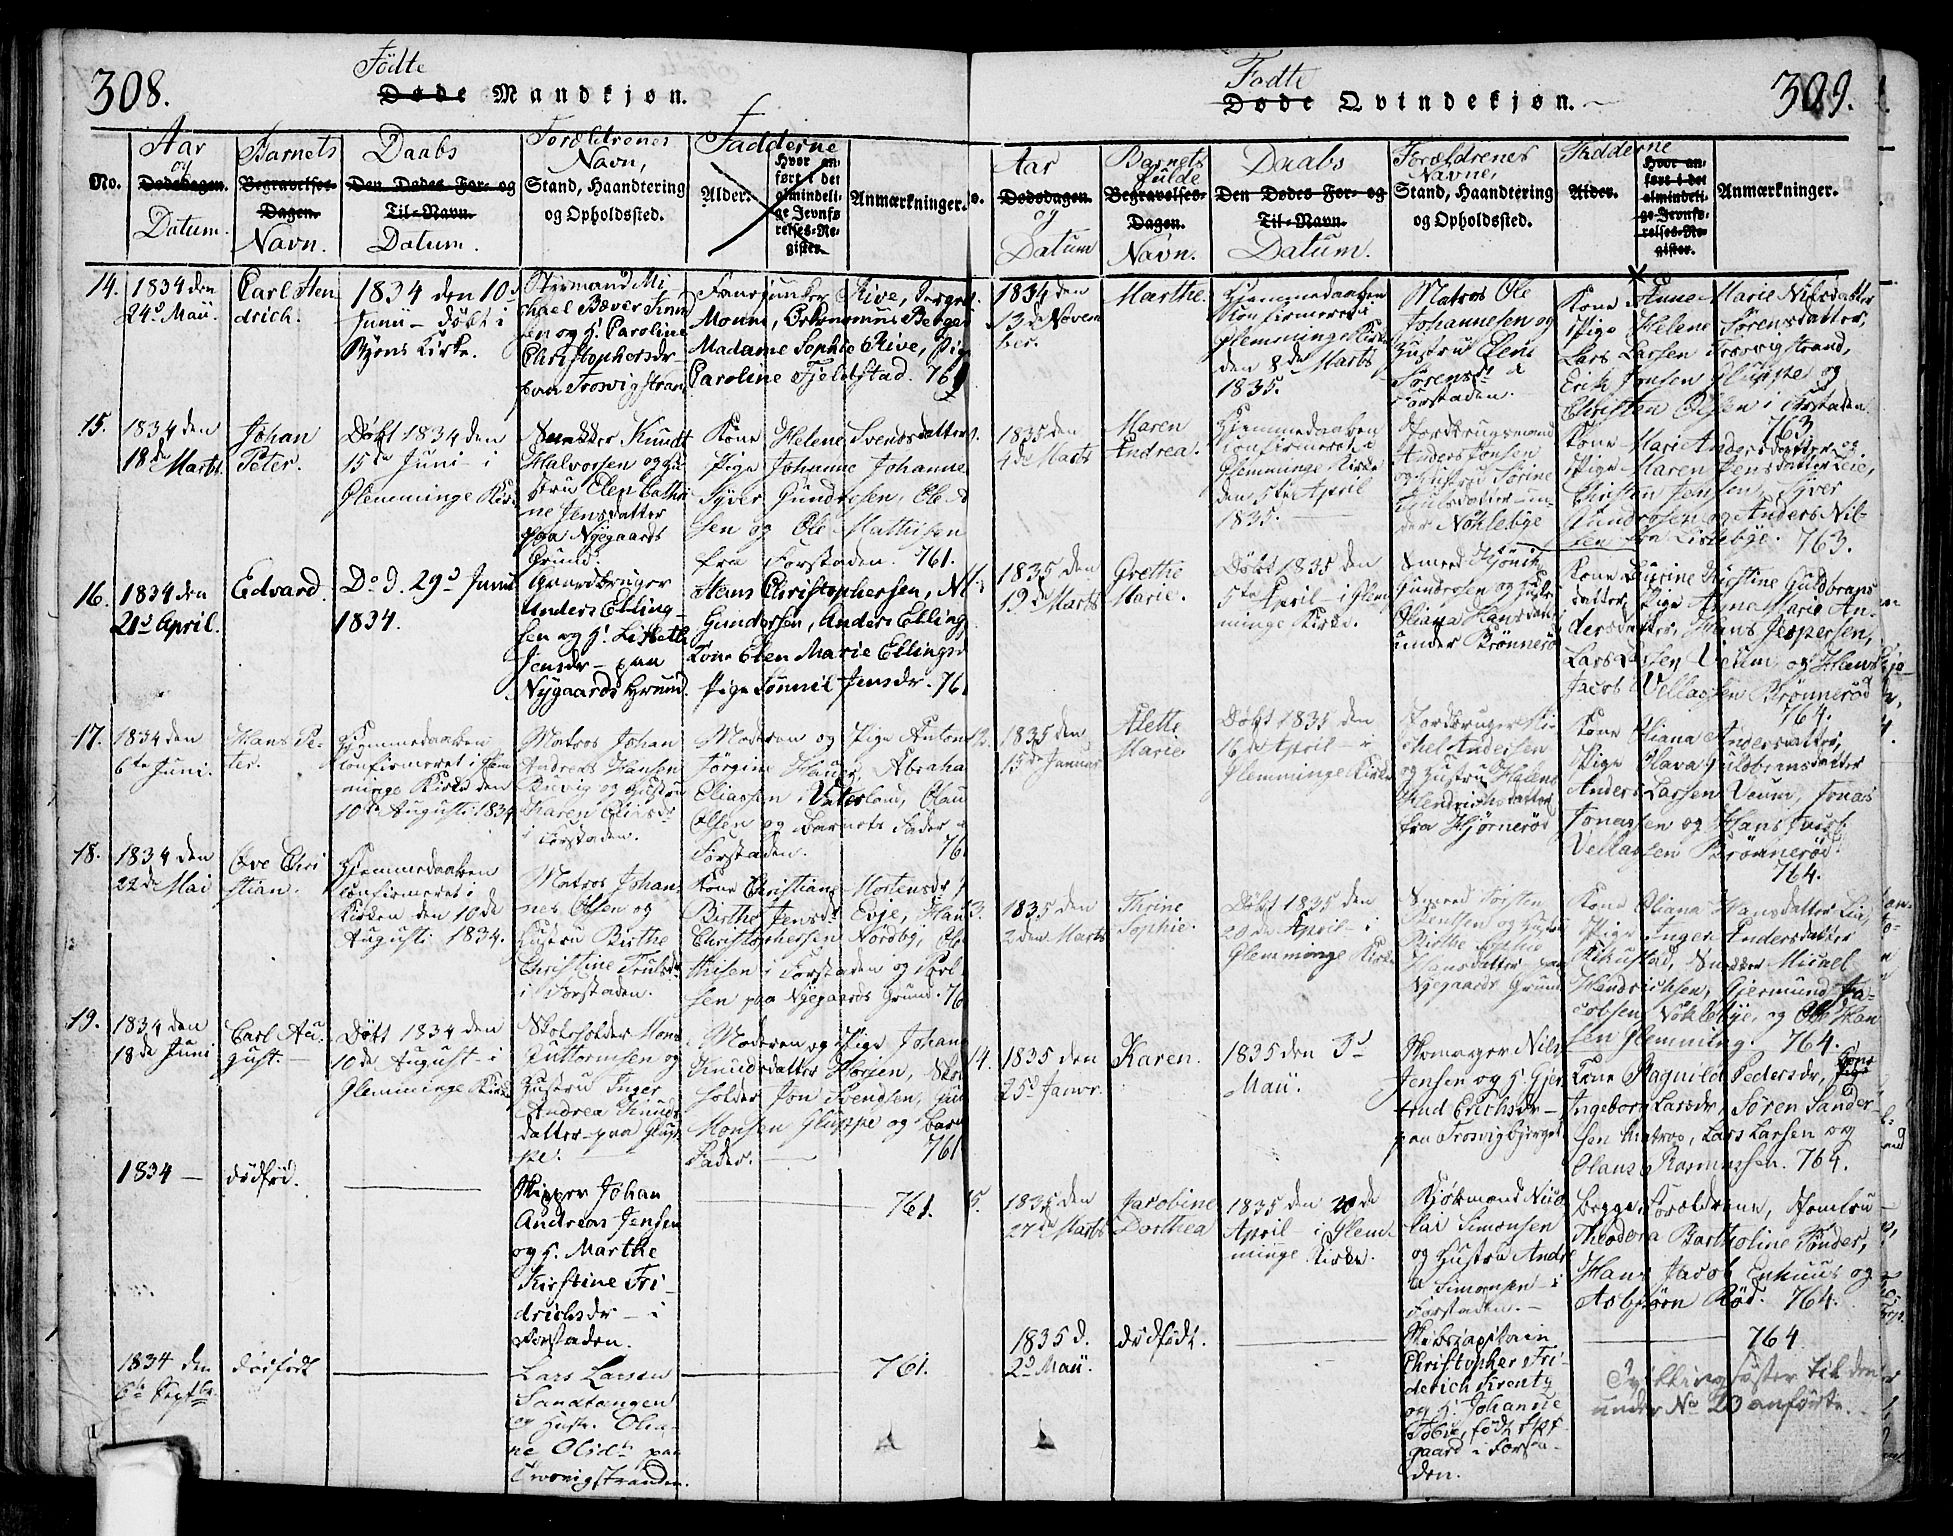 308.
Födte
Døde Mandkjøn.
No.
Aar
og
Dødsdagen.
Datum.
Barnets
Begravelses-
Dagen.
Navn.
Daabs
Den Dødes For- og
Til-Navn.
Datum.
Forældrenes
Navn,
Stand, Haandtering
og Opholdssted.
Fadderne
Alder.
Hvor an-
ført i det
almindeli-
ge Jevnfø-
relses-Re-
gister.
Anmærkninger.
14.
1834 den
24d Maii.
Carl Hen
drich.
1834 den 10d
Junii - döbt i
Byens Kirke.
Styrmand Mi-
chael Bæver
en og H. Caroline
Christophersdr
paa Trosvigstran
Rive,
Madame Sophie Rive, Pig
Caroline Fjeldstad. 761
15.
1834 den
18de Marts
Johan
Peter.
Döbt 1834 den
15de Juni - i
Glemminge Kir
Snedker Knudt
Halvorsen og Hu
stru Elen Cathri
ne Jensdatter
paa Nyegaards
Grund
Kone Helene Svendsdatter
Pige Johanne Johanne
Syver Gundrosen, Ole
sen og Ole Mathisen
fra Forstaden. 761.
16.
1834 den
21d April.
Edvard.
Do d. 29d Junii
1834.
Gaardbruger
Anders Elling-
sen og H. Lisbeth
Jensdr - paa
Nygaards Grund.
Hans Christophersen,
Gundersen, Anders Elling
Kone Elen Marie Ellingsd
Pige Jensdr. 76
17.
1834 den
6te Juni.
Hans Pe-
ter.
Hjemmedaaben
confirmeret i Glem
minge Kirke den
10de Augusti 1834
Matros Johan
Andreas Hansen
Buvig og Hustru
Karen Eliasdr
i Forstaden.
Moderen og Pige Aulen
Jörgine Haug, Abraha
Eliassen i Vaterland, Olau
Olsen og Barnets Fader
Forstaden. 76
18.
1834 den
22de Mai
Ove Chri
stian.
Hjemmedaaben
confirmeret i
Kirken den 10de
Augusti 1834.
Matros Johan
nes Olsen og
Hustru Birthe
Christine Trulsdr
i Forstaden.
Kone Christiane Mortensdr
Birthe Jensdr Evje, Han
Christophersen Nordby, Ol
thisen i Forstaden og Carl
sen paa Nyegaards Grund. 76
19.
1834 den
18de Juni
Carl Au
gust.
Döbt 1834 den
10de August - i
Glemminge Kirke
Guttormsen og
Hustru Inger
Andrea Knuds
datter paa Glup
pe.
Moderen og Pige Johan
Knudsdatter
Jon Svendsen,
Monsen Gluppe og Bar
Fader. 761
1834 -
dödföd.
Skipper Johan
Andreas Jensen
og H. Marthe
Kirstine Fri-
drichsdr - i
Forstaden.
761.
1834 den
6te Septbr
dödfödt
Lars Larsen
Sandtangen
og Hustr. Oli-
ne Olsdtr paa
Trosvigstranden.
761.
309.
Fødte
Døde Qvindekjøn.
Aar
Dødsdagen.
og
Datum
Barnets
fulde
Begravelses-
Dagen.
Navn.
Daabs
Den Dødes For- og
Til-Navn.
Datum.
Forældrenes
Navne,
Stand, Haandtering
og Opholdssted.
Fadderne
Alder.
Hvor an-
ført i det
almindeli-
ge Jevnfø-
relses-Re-
gister.
Anmærkninger.
1834 den
13de Novem
ber.
Marthe.
Hjemmedaaben
confirmeret i
Glemminge Kirke
den 8de Marts
1835.
Matros Ole
Johannesen og
Hustru Eleni
Sörensdr i
Forstaden.
Kone Anne Marie Nilsdatter
Pige Helene Sörensdatter,
Lars Larsen Trosvigstrand,
Erik Jonsen Gluppe og
Christen Olsen i Forstaden
763
1835 den
4de Marts
Maren
Andrea.
Hjemmedaaben
confirmeret i
Glemminge Kirke
den 5te April
1835.
Jordbrugsmand
Anders Jonsen
og Hustru Sörine
Truls datter un-
der Nöklebye
Kone Mari Andersdatter og
Pige Maren Jensdatter Leie,
Christen Jensen, Syver
Gundrosen og Anders Nil-
sen fra Lislebye. 763.
1835 den
19de Marts
Grethe
Marie.
Döbt 1835 den
5te April i Glem
minge Kirke.
Smed
Gundrosen og Hustr
Oliana Hansdatt
under Brönneröd
Kone Kirstine Guldbrans
datter, Pige Anna Marie An-
dersdatter, Hans Jespersen,
Lars Olsen Veum og Johan
Jacob Vellassen Brönneröd
764.
1835 den
15de Januar
Alette
Marie
Döbt 1835 den
16de April - i
Glemminge Kirke
Jordbruger Mi
chel Andersen
og Hustru Helene
Hendrichsdatter
fra Hjörneröd
Kone Oliana Andersdatter,
Pige Olava Guldbransdatter
Anders Larsen Veum, Jonas
Jonassen og Hans Juul
Vellassen Brönneröd.
764.
1835 den
2den Marts
Thrine
Sophie.
Döbt 1835 den
20de April - i
Glemminge Kirke
Smed Torsten
Bentsen og Hustr
Birthe Sophie
Hansdatter paa
Nyegaards Grund
Kone Oliana Hansdatter Lie,
Pige Inger Andersdatter
Rikustad, Snedker Micael
Hendrichsen, Gjermund Ja-
cobsen Nöklebye, og Ole Han
sen Glemming. 764.
14.
1835 den
25d Janvr.
Karen.
1835 den 3d
Maii.
Skomager Nils
Jensen og H. Gjer
trud Erichsdr -
paa Trosvigbjerget
Kone Ragnild Pedersdr,
Ingeborg Larsdr, Sören Sander-
sen Matros, Lars Larsen og
Olaus Rasmussen. 764.
15.
1835 den
27de Marts
Jacobine
Dorthea
1835 den 20de
April - i Glem
minge Kirke.
Kjöbmand Nico
lai Simonsen
og Hustru Andre
a Simonsen - i
Forstaden.
Begge Forældrene, Jomfru
Theodora Bartholine Tönder,
Hans Jacob Enhuus og
Asbjörn Röd. 764.
1835 d.
2d Maii.
dödfödt.
Skibscapitain
Christopher Fri-
derich Krentz
og H. Johanne
Tobie, född
gaard i Forsta-
den.
764
Tvillingsöster til den
under No 23 anförte.